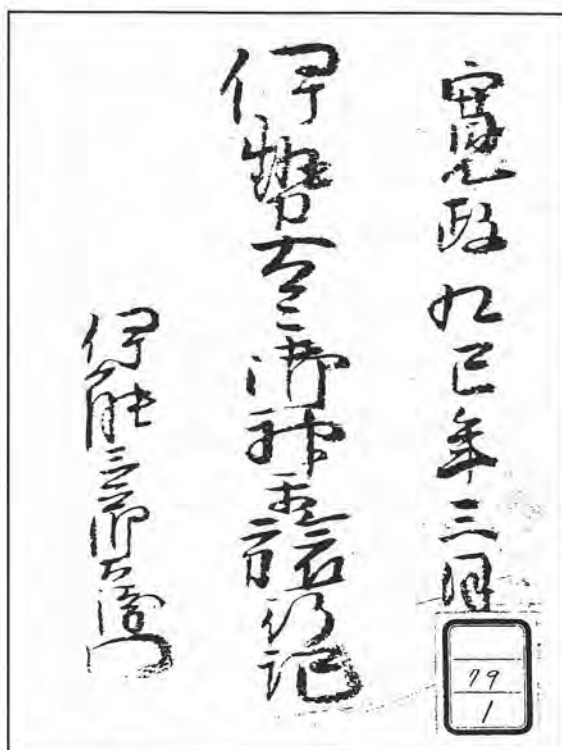 寛政九巳年三月
伊勢太々御神行記
伊能三郎右衛門
79
1